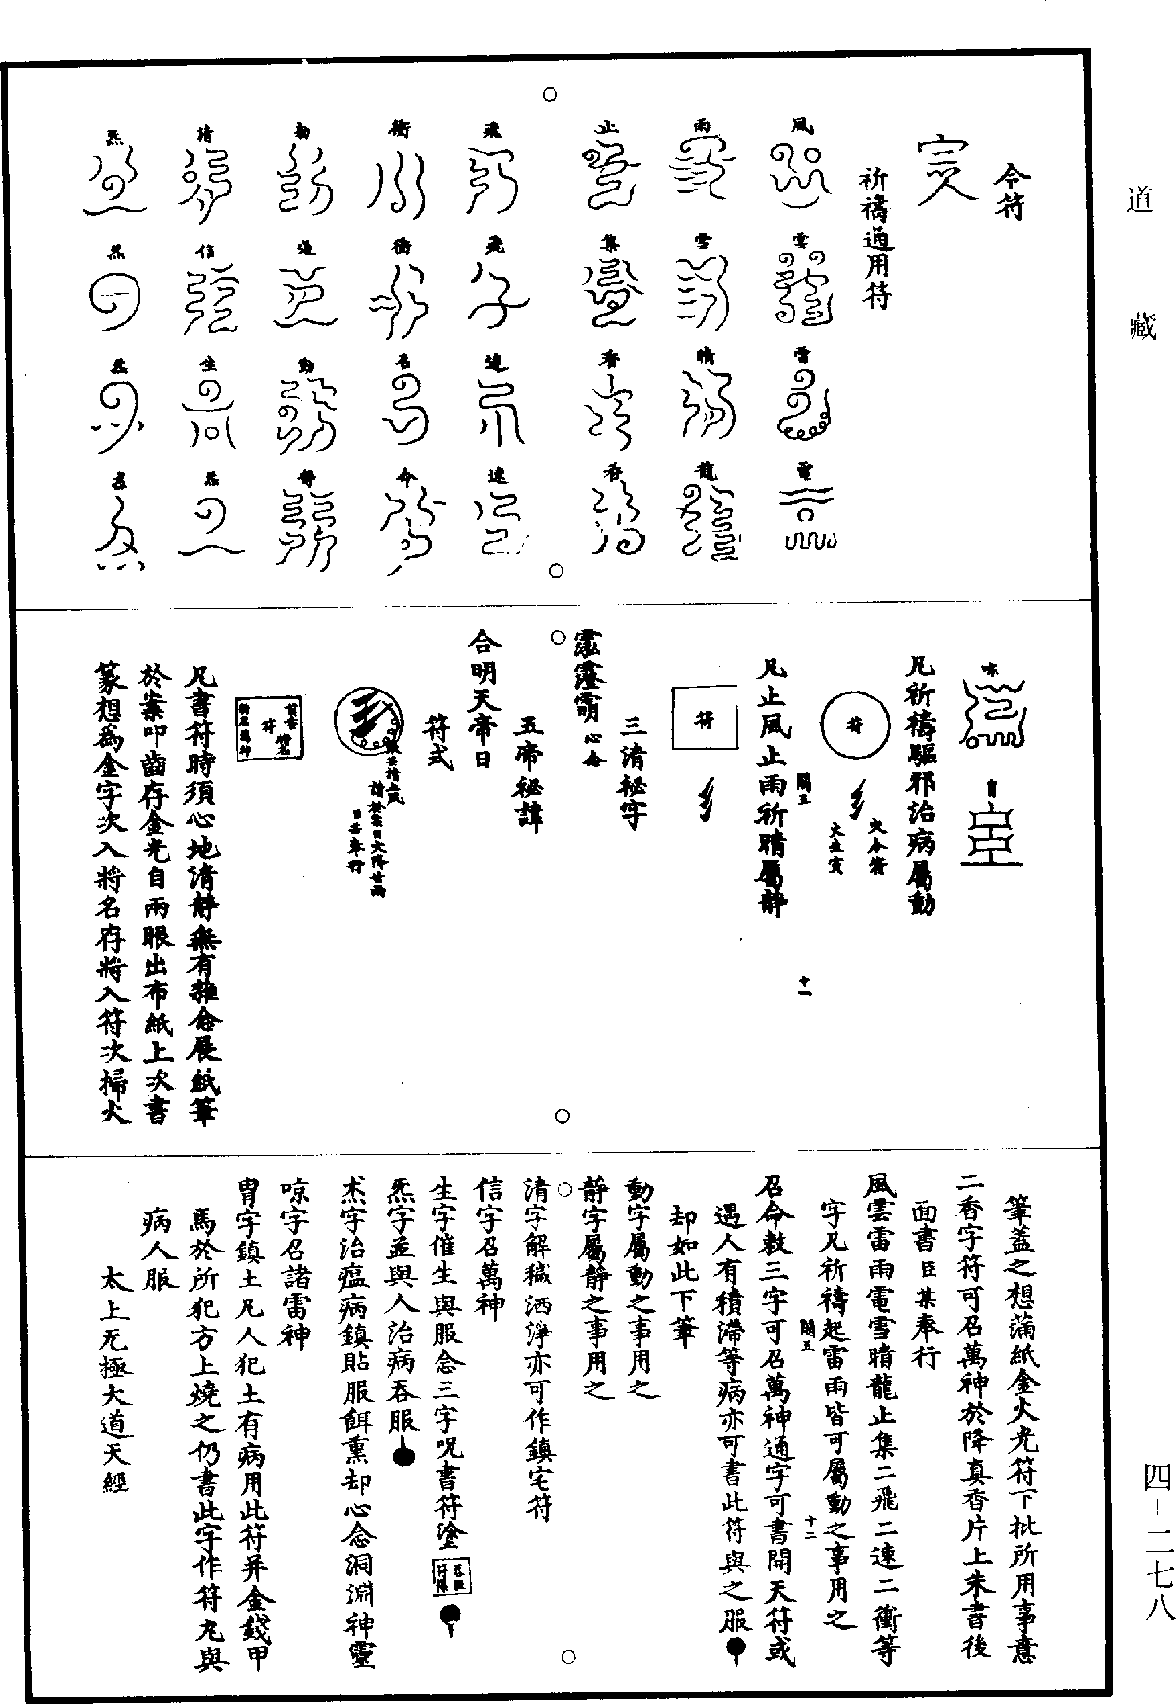 道藏
令符
祈禱通用符
風 雲 雷 電
雨 雪 晴 龍
止 集 香 香
飛 飛 速 速
衝 衝 召 命
勑 通 動 靜
清 信 生 炁
炁
凡祈禱驅邪治病屬動
符
火令符
凡止風止雨祈晴屬靜
符
三清祕字
心念
五帝祕諱
合明天帝日
符式
符
凡書符時須心地清靜無有雜念展紙筆
於案叩齒存金光自兩眼出布紙上次書
篆想為金字次入將名存將入符次掃火
筆蓋之想滿紙金火光符下批所用事意
二香字符可召萬神於降真香片上朱書後
面書臣某奉行
風雲雷雨電雪晴龍止集二飛二速二衝等
字凡祈禱起雷雨皆可屬動之事用之
十二
召命敕三字可召萬神通字可書開天符或
遇人有積滯等病亦可書此符與之服
却如此下筆
動字屬動之事用之
靜字屬靜之事用之
清字解穢洒淨亦可作鎮宅符
信字召萬神
生字催生與服念三字呪書符塗
炁字並與人治病吞服
字治瘟病鎮貼服餌熏却心念洞淵神靈
喨字召諸雷神
字鎮土凡人犯土有病用此符并金錢甲
馬於所犯方上燒之仍書此字作符丸與
病人服
太上无極大道天經
四-二七八